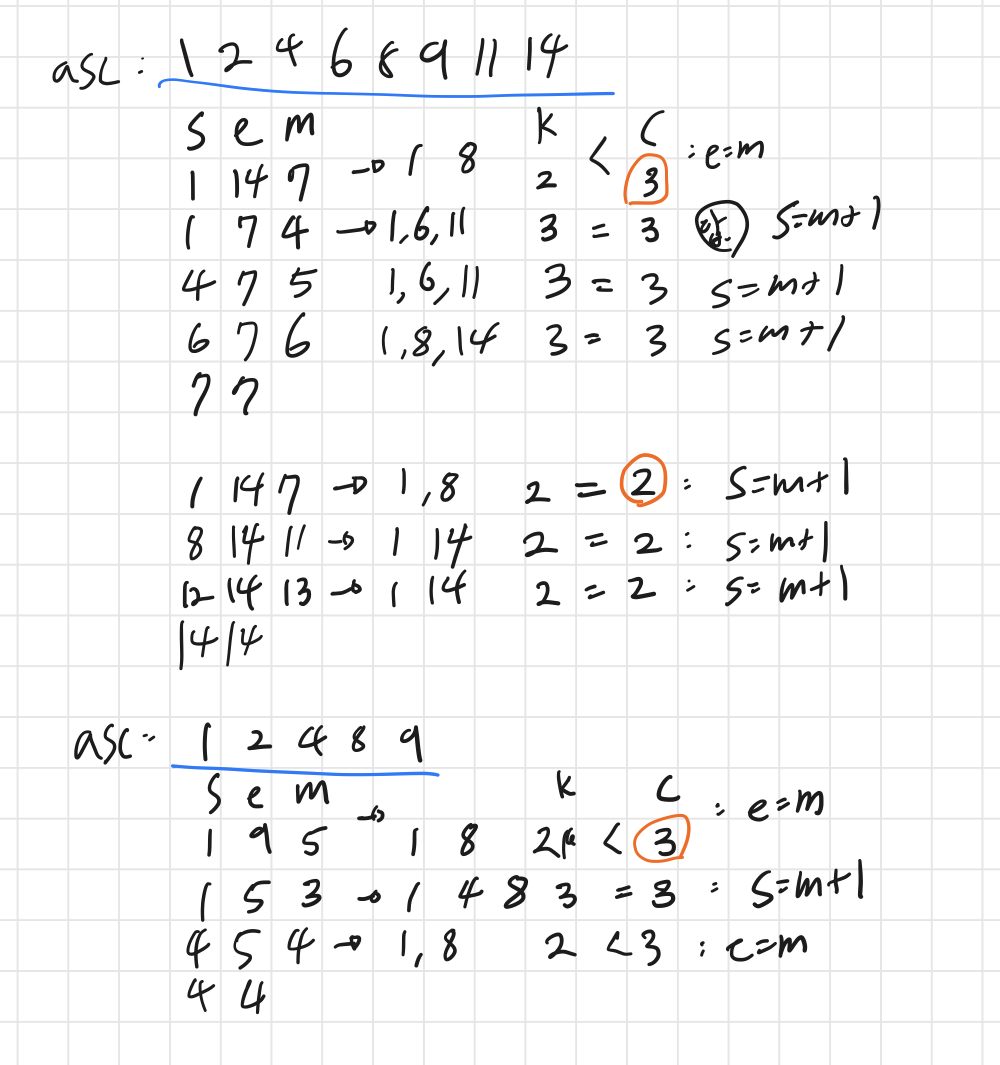 asc : 1 2 4 6 8 9 11 14
s e m k C
1 14 7 → 1 8 2 < 3 : e=m
1 7 4 → 1,6,11 3 = 3 s=m+1
4 7 5 1,6,11 3 = 3 s=m+1
6 7 6 1,8,14 3 = 3 s=m+1
7 7
1 14 7 → 1,8 2 = 2 : s=m+1
8 14 11 → 1 14 2 = 2 : s=m+1
12 14 13 → 1 14 2 = 2 : s=m+1
14 14
asc : 1 2 4 8 9
s e m k C
1 9 5 → 1 8 2 < 3 : e=m
1 5 3 → 1 4 8 3 = 3 : s=m+1
4 5 4 → 1,8 2 < 3 : e=m
4 4